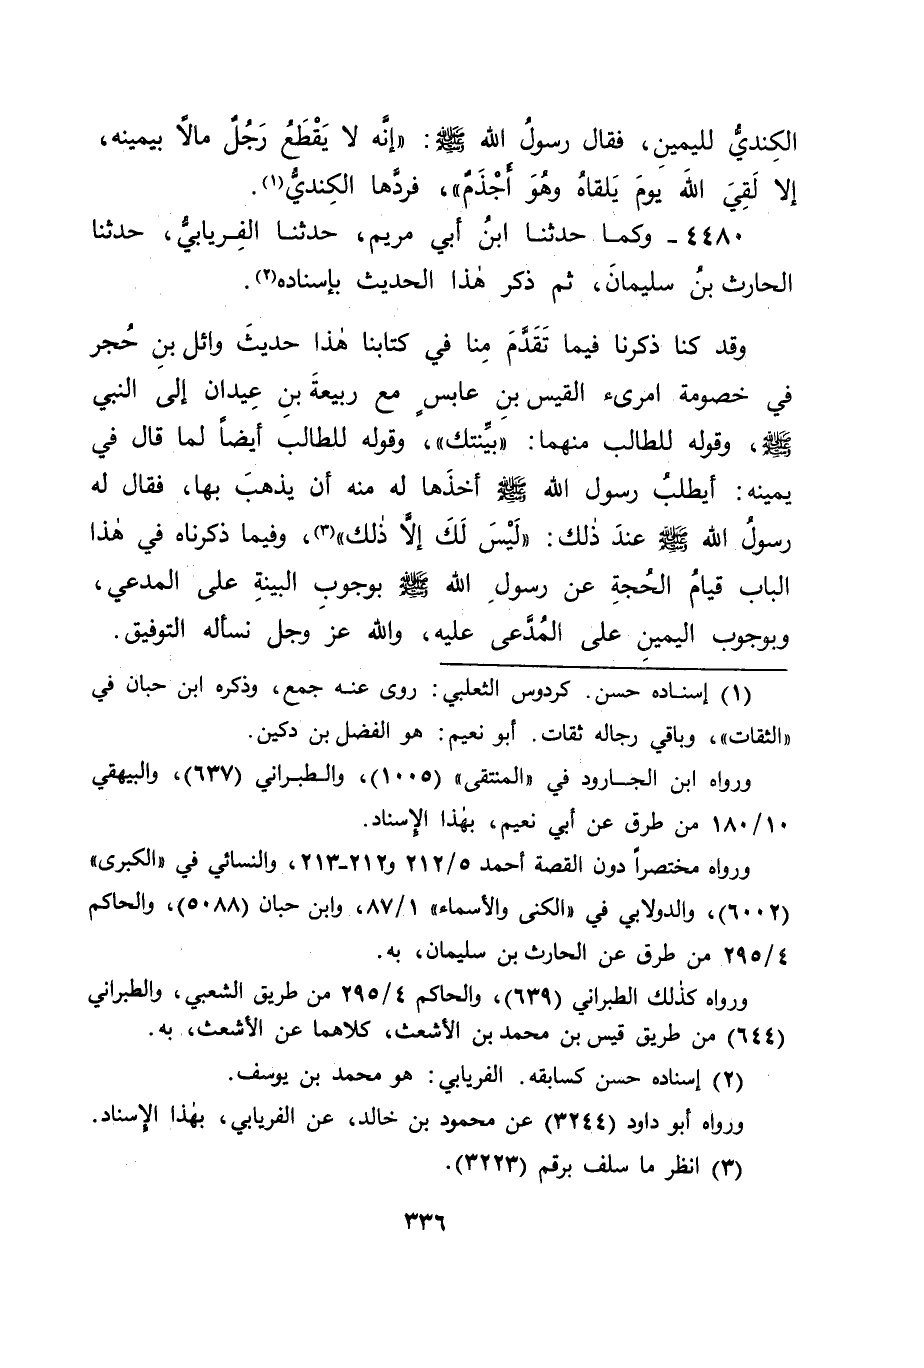 الكِنديُّ لليمينِ، فقال رسولُ الله ﷺ: «إنَّه لا يَقْطَعُ رَجُلٌ مالاً بيمينه،
إلا لَقِيَ اللهَ يومَ يَلقاهُ وهُوَ أَجْذَمُ»، فردَّها الكِنديُّ(١).
٤٤٨٠ - وكمـا حدثنـا ابنُ أبي مريم، حدثنـا الفِـريابيُّ، حدثنا
الحارث بنُ سليمانَ، ثم ذكر هٰذا الحديث بإسناده(٢).
وقد كنا ذكرنا فيما تَقَدَّمَ مِنا في كتابنا هٰذا حديثَ وائل بنِ حُجر
في خصومة امرىء القيس بنِ عابسٍ مع ربيعةَ بنِ عِيدان إلى النبي
ﷺ، وقوله للطالب منهما: «بيِّنتك»، وقوله للطالب أيضاً لما قال في
يمينه: أيطلبُ رسول الله ﷺ أخذَها له منه أن يذهبَ بها، فقال له
رسولُ الله ﷺ عندَ ذٰلك: «لَيْسَ لَكَ إلاَّ ذٰلك»(٣)، وفيما ذكرناه في هٰذا
الباب قيامُ الحُجةِ عن رسولِ الله ﷺ بوجوبِ البينةِ على المدعي،
وبوجوب اليمينِ على المُدَّعى عليه، والله عز وجل نسأله التوفيق.
(١) إسنـاده حسن. كردوس الثعلبي: روى عنـه جمع، وذكره ابن حبان في
«الثقات»، وباقي رجاله ثقات. أبو نعيم: هو الفضل بن دكين.
ورواه ابن الجـارود في «المنتقى» (١٠٠٥)، والـطبـراني (٦٣٧)، والبيهقي
١٨٠/١٠ من طرق عن أبي نعيم، بهٰذا الإِسناد.
ورواه مختصراً دون القصة أحمد ٢١٢/٥ و٢١٢-٢١٣، والنسائي في «الكبرى»
(٦٠٠٢)، والدولابي في «الكنى والأسماء» ٨٧/١، وابن حبان (٥٠٨٨)، والحاكم
٢٩٥/٤ من طرق عن الحارث بن سليمان، به.
ورواه كذٰلك الطبراني (٦٣٩)، والحاكم ٢٩٥/٤ من طريق الشعبي، والطبراني
(٦٤٤) من طريق قيس بن محمد بن الأشعث، كلاهما عن الأشعث، به.
(٢) إسناده حسن كسابقه. الفريابي: هو محمد بن يوسف.
ورواه أبو داود (٣٢٤٤) عن محمود بن خالد، عن الفريابي، بهٰذا الإِسناد.
(٣) انظر ما سلف برقم (٣٢٢٣).
٣٣٦